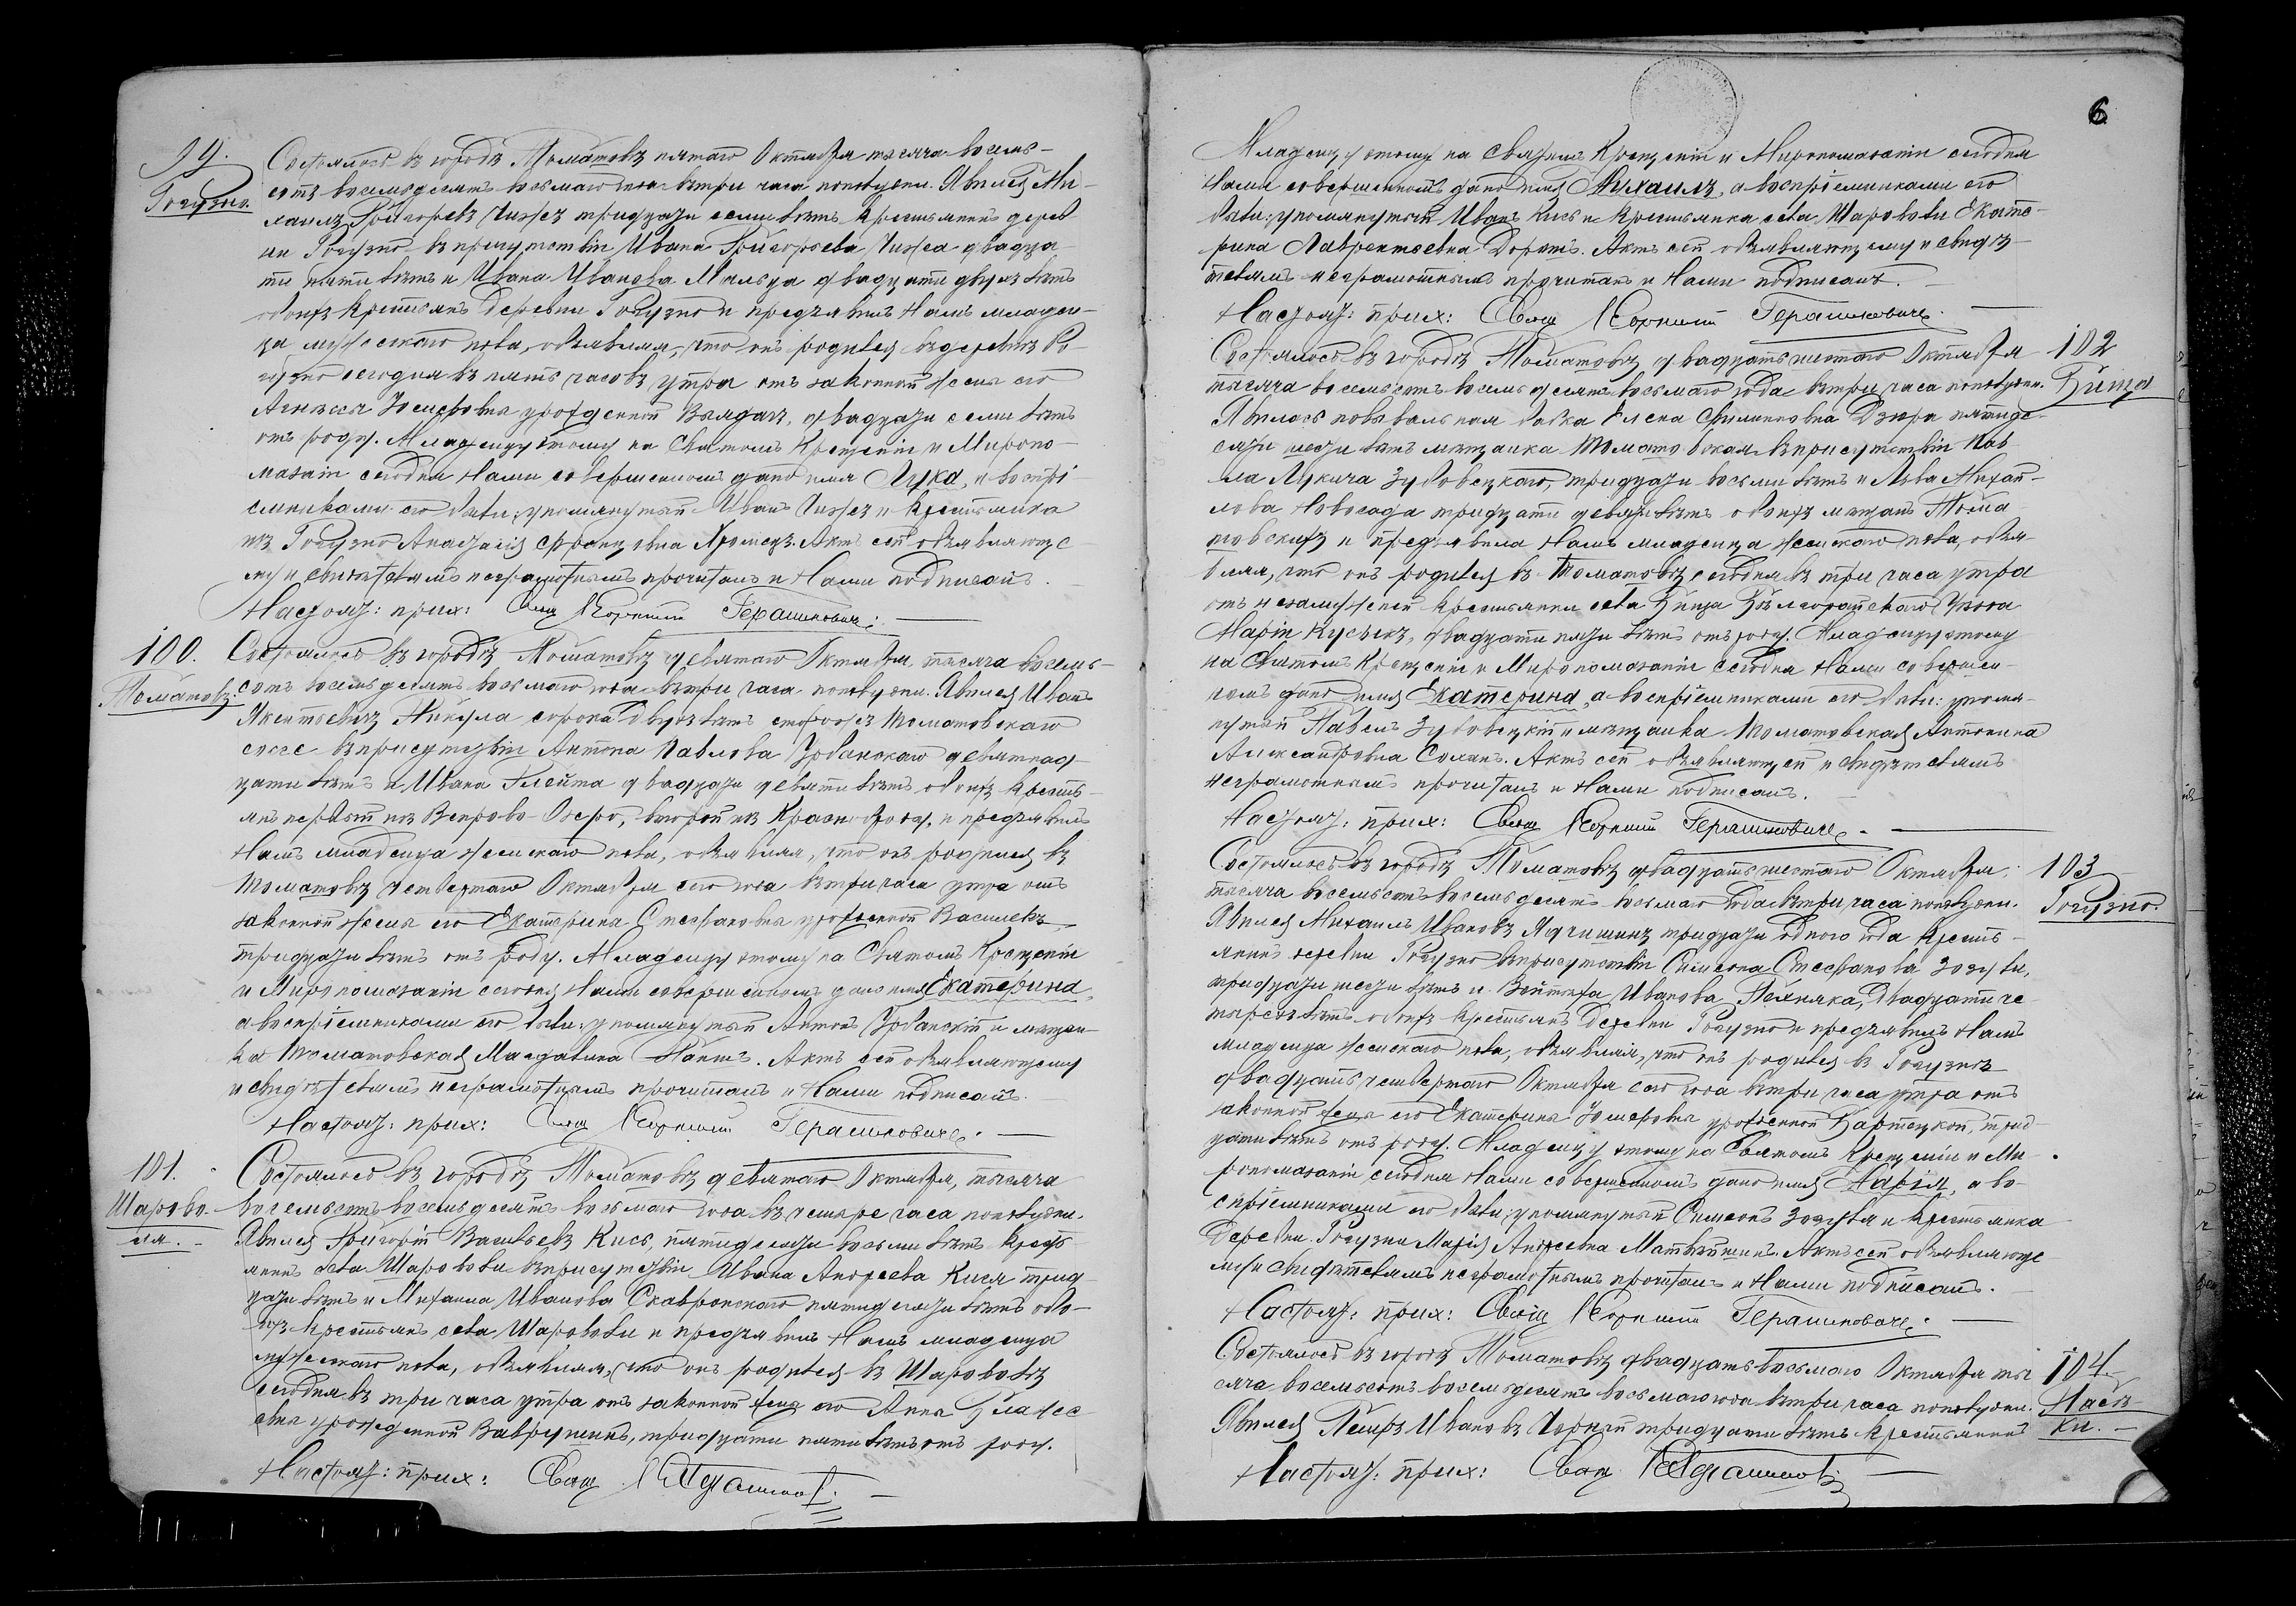 99.
Рогузно.
Состоялось въ городѣ Томашовѣ пятаго Октября тысяча восемь-
сотъ восемьдесятъ восьмаго года въ три часа пополудни. Явился Ми-
хаилъ Григорьевъ Чижъ тридцати семи лѣтъ крестьянинъ дерев
ни Рогузно въ присутствіи Ивана Григорьева Чижа двадца-
ти пяти лѣтъ и Ивана Иванова Мальца двадцати двухъ лѣтъ
обоихъ крестьянъ деревни Рогузно и предъявилъ Намъ младен-
ца мужескаго пола, объявляя, что онъ родился въ деревнѣ Ро-
гузно сегодня въ пять часовъ утра отъ законной жены его
Агнесы Іосифовны урожденной двадцати семи лѣтъ
отъ роду. Младенцу этому на Святомъ Крещеніи и Миропо-
мазаніи сегодня Нами совершенномъ дано имя Лука, а воспрі-
емниками его были: упомянутый Иванъ Чижъ и крестьянка
изъ Рогузно Анастасія Актъ сей объявляюще-
му и свидѣтелямъ неграмотнымъ прочитанъ и Нами подписанъ.
Настоят: прих: Свящ Корнилій Герашковичъ.
100.
Томашовъ.
Состоялось въ городѣ Томашовѣ девятаго Октября, тысяча восемь-
сотъ восемьдесятъ восьмаго года въ три часа пополудни. Явился Иванъ
Никула сорока двухъ лѣтъ сторожъ Томашовскаго
въ присутствіи Антона Павлова Урбанскаго девятнад-
цати лѣтъ и Ивана Глейта двадцати девяти лѣтъ обоихъ кресть-
янъ первый изъ Верхово-Озеро, второй изъ и предъявилъ
Намъ младенца женскаго пола, объявляя, что онъ родился въ
Томашовѣ четвертаго Октября сего года въ три часа утра отъ
законной жены его Екатерины Стефановны урожденной Василевъ
тридцати лѣтъ отъ роду. Младенцу этому на Святомъ Крещеніи
и Миропомазаніи сегодня Нами совершенномъ дано имя Екатерина,
а воспріемниками его были: упомянутый Антонъ Урбанскій и мѣщан-
ка Томашовская Магдалина Актъ сей объявляющему
и свидѣтелямъ неграмотнымъ прочитанъ и Нами подписанъ.
Настоят: прих: Свящ Корнилій Герашковичъ.
101.
Шарово-
ля.
Состоялось въ городѣ Томашовѣ девятаго Октября, тысяча
восемьсотъ восемьдесятъ восьмаго года въ четыре часа пополудни.
Явился Григорій Васильевъ Кись, пятидесяти восьми лѣтъ кресть
янинъ села Шароволи въ присутствіи Ивана Андреева Кися трид
цати лѣтъ и Михаила Иванова Скавронскаго пятидесяти лѣтъ обо-
ихъ крестьянъ села Шароволи и предъявилъ Намъ младенца
мужескаго пола, объявляя, что онъ родился въ Шароволѣ
сегодня въ три часа утра отъ законной жены его Анны
евны урожденной Ваврушинъ, тридцати пяти лѣтъ отъ роду.
Настоят: прих: Свящ К Герашков.
6
Младенцу этому на Святомъ Крещеніи и Миропомазаніи сегодня
Нами совершенномъ дано имя Михаилъ, а воспріемниками его
были: упомянутый Иванъ Кись и крестьянка села Шароволи Екате-
рина Лаврентьевна Дорошъ. Актъ сей объявляющему и свидѣ-
телямъ неграмотнымъ прочитанъ и Нами подписанъ.
Настоят: прих: Свящ Корнилій Герашковичъ.
102
Кница
Состоялось въ городѣ Томашовѣ двадцать шестаго Октября
тысяча восемьсотъ восемьдесятъ восьмаго года въ три часа пополудни.
Явилась повивальная бабка Елена Дзюра пятиде-
сяти шести лѣтъ мѣщанка Томашовская въ присутствіи Пав-
ла Лукича Зубовецкаго, тридцати восьми лѣтъ и Льва Михай-
лова Новосада тридцати девяти лѣтъ обоихъ мѣщанъ Тома-
шовскихъ и предъявила Намъ младенца женскаго пола, объя-
вляя, что онъ родился въ Томашовѣ сегодня въ три часа утра
отъ незамужней крестьянки села Бѣлгорайскаго Уѣзда
Маріи двадцати пяти лѣтъ отъ роду. Младенцу этому
на Святомъ Крещеніи и Миропомазаніи сегодня Нами совершен-
номъ дано имя Екатерина, а воспріемниками его были: упомя-
нутый Павелъ Зубовецкій и мѣщанка Томашовская Антонина
Александровна Соланъ. Актъ сей объявляющей и свидѣтелямъ
неграмотнымъ прочитанъ и Нами подписанъ.
Настоят: прих: Свящ Корнилій Герашковичъ.
103
Рогузно.
Состоялось въ городѣ Томашовѣ двадцать шестаго Октября,
тысяча восемьсотъ восемьдесятъ восьмаго года въ три часа пополудни.
Явился Михаилъ Ивановъ тридцати одного года кресть-
янинъ деревни Рогузно въ присутствіи Симеона Стефанова Зозули,
тридцати шести лѣтъ и Войтѣха Иванова двадцати че-
тырехъ лѣтъ обоихъ крестьянъ деревни Рогузно и предъявилъ Намъ
младенца женскаго пола, объявляя, что онъ родился въ Рогузнѣ
двадцать четвертаго Октября сего года въ три часа утра отъ
законной жены его Екатерины Іосифовны урожденной Бартецкой, трид-
цати лѣтъ отъ роду. Младенцу этому на Святомъ Крещеніи и Ми-
ропомазаніи сегодня Нами совершенномъ дано имя Марія, а во-
спріемниками его были: упомянутый Симеонъ Зозуля и крестьянка
деревни Рогузно Марія Андреевна Матвѣйшинъ. Актъ сей объявляюще
му и свидѣтелямъ неграмотнымъ прочитанъ и Нами подписанъ.
Настоят: прих: Свящ Корнилій Герашковичъ.
104
Пасѣ-
ки.
Состоялось въ городѣ Томашовѣ двадцать восьмого Октября ты
сяча восемьсотъ восемьдесятъ восьмаго года въ три часа пополудни.
Явился Петръ Ивановъ Чорный тридцати лѣтъ крестьянинъ
Настоят: прих: Свящ К Герашков.